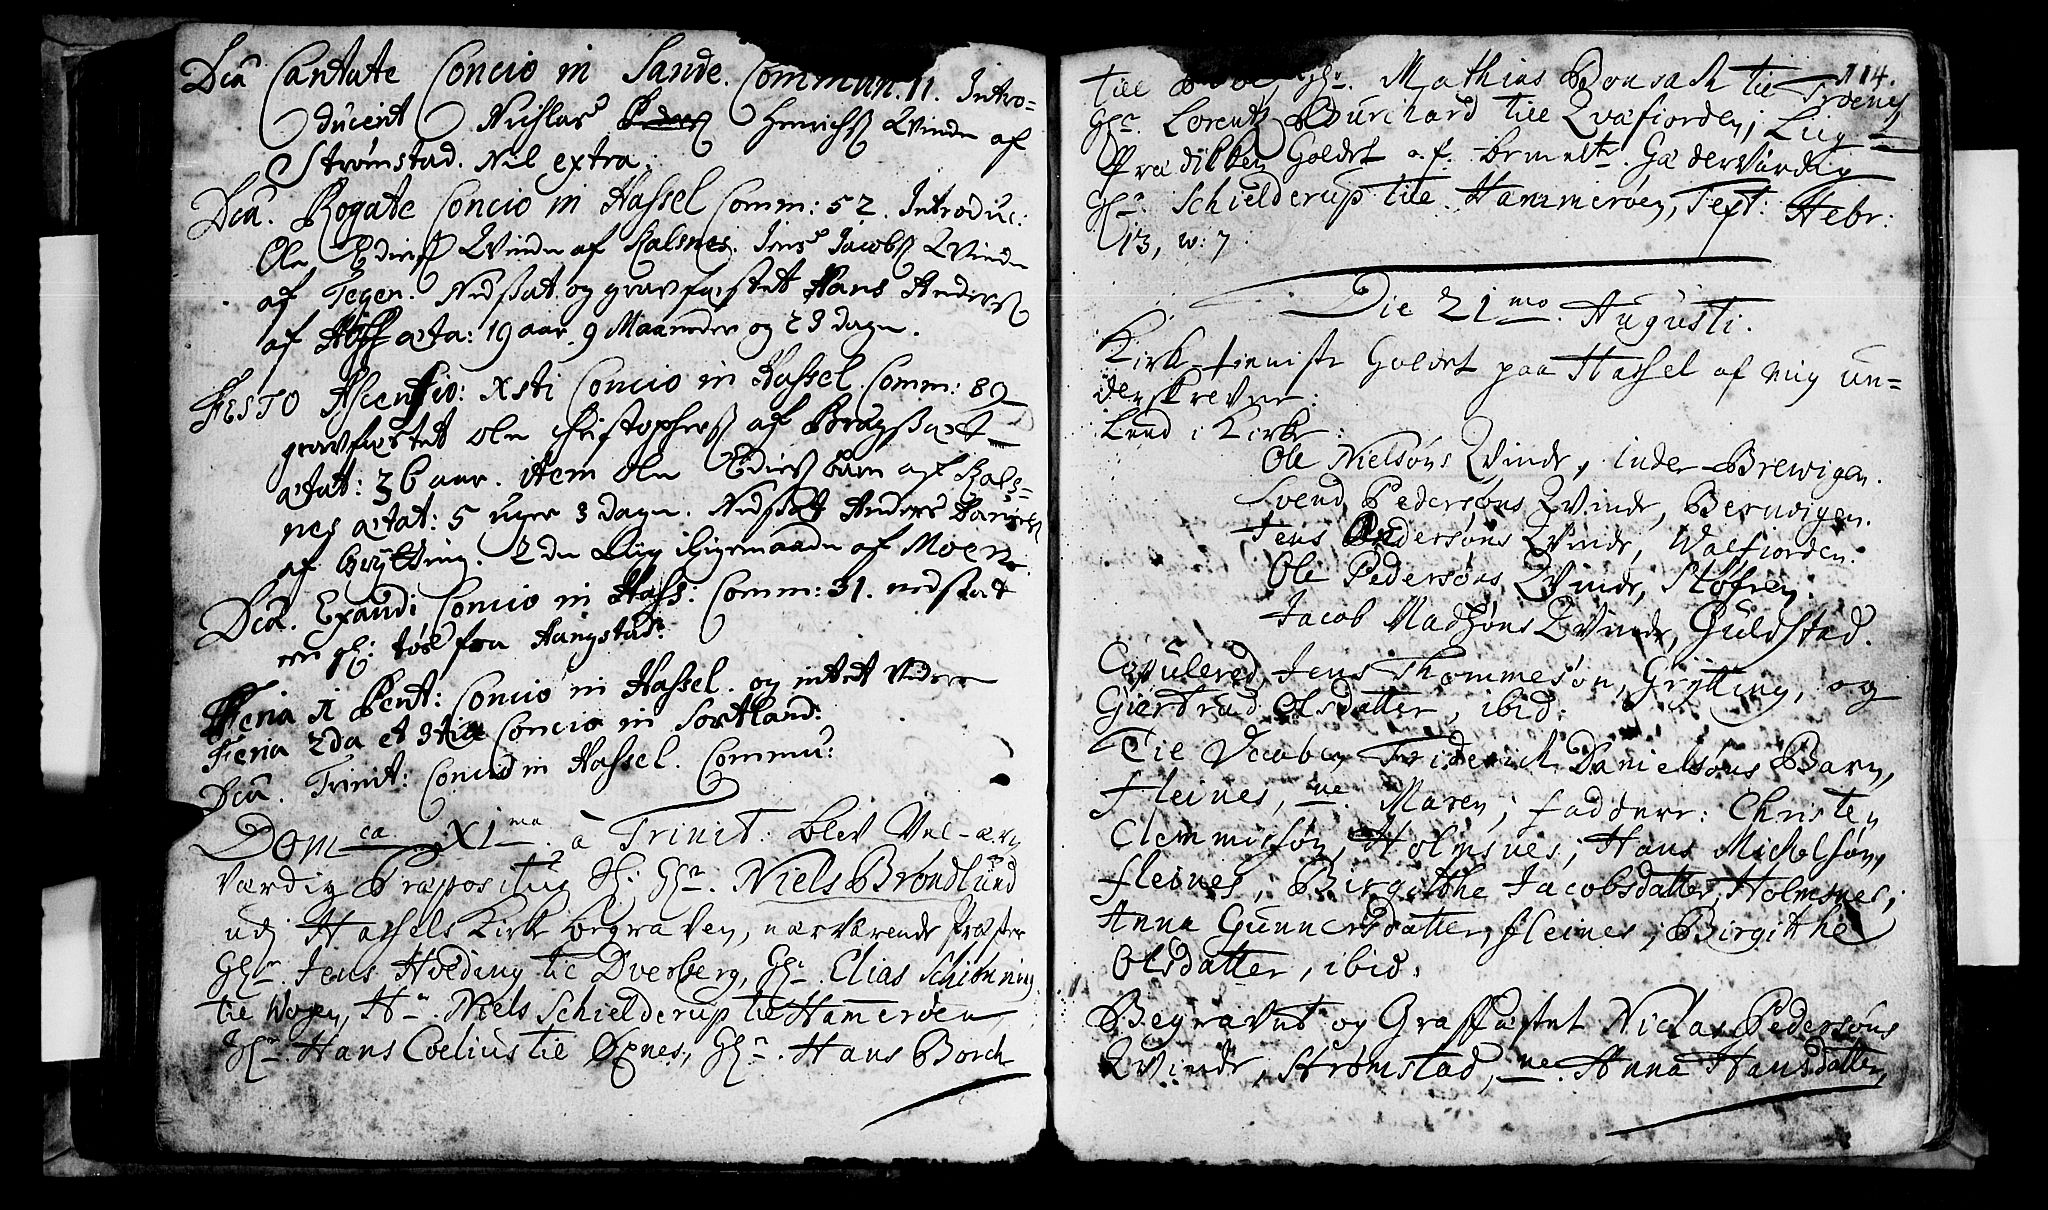 Dca Cantate Concio in Sande. Commun. 11. Intro=
ducerit Nichlas Henrichs Qvinde af
Strømstad. Nil extra.
Dca. Rogate Concio in Hassel Comm: 52. Introduc:
Ole Qvinde af Kalsnes. Jens Jacobs Qvinde
af Tegen. Nedsat og gravfæstet Hans Anders
af æta: 19 aar 9 Maaneder og 23 dage.
FESTO Ascensio: Xsti Concio in Hassel. Comm: 89
gravfæstet Ole Christophers af
ætat: 36 aar. Item Ole barn af Kals=
nes ætat: 5 uger 3 dage. Nedsat Anders
af Grytting. 2de Liig af Moen.
Dca. Exaudi Concio in Hass: Comm: 31. nedsat
fra Ringstad.
Feria 1 Pent: Concio in Hassel. og intet videre
Feria 2da et 3tia Concio in Sortland:
Dca. Trinit: Concio in Hassel. Commu:
Domca XIma à Trinit: blev Vel-ærv
værdig Præpositus Sl: Hr. Niels Brøndlund
udj Hassels Kirke begraven, nærværende Præster
Hr. Jens Hveding til Dverberg, Hr. Elias Schiønning
til Wogen, Hr. Niels Schielderup til Hamerøen
Hr. Hans Coelius til Øxnes, Hr. Hans Borch
114.
till Hr. Mathias Bonsach til Troenes
Hr. Lorentz Burchard till Qvæfiorden; Liig=
Prædikken holdet af bemelte Hæderværdig
Hr. Schielderup till Hammerøen, Text: Hebr:
13, w: 7
Die 21mo Augusti.
Kirke-tienniste holdet paa Hassel af mig un=
derskrevne:
Leed i Kirke:
Ole Nielsøns Qvinde, inder Brewigen.
Svend Pedersøns Qvinde, Beruvigen.
Jens Andersøns Qvinde, Walfiorden.
Ole Pedersøns Qvinde, Støfren.
Jacob Madsøns Qvinde, Guldstad.
Copulered Jens Thommesøn, Grytting, og
Giertrud Olsdatter, ibid:
Til Daaben, Friderich Danielsøns Barn,
Fleines, ne. Maren; fadderr: Christen
Clemmitsøn, Holmsnes; Hans Michelsøn,
Fleines, Birgithe Jacobsdatter, Holmsnes;
Anna Gunnersdatter, Fleines; Birgithe
Olsdatter, ibid.
Begravet og Graffæstet Niclas Pedersøns
Qvinde, Strømstad, ne. Anna Hansdatter,